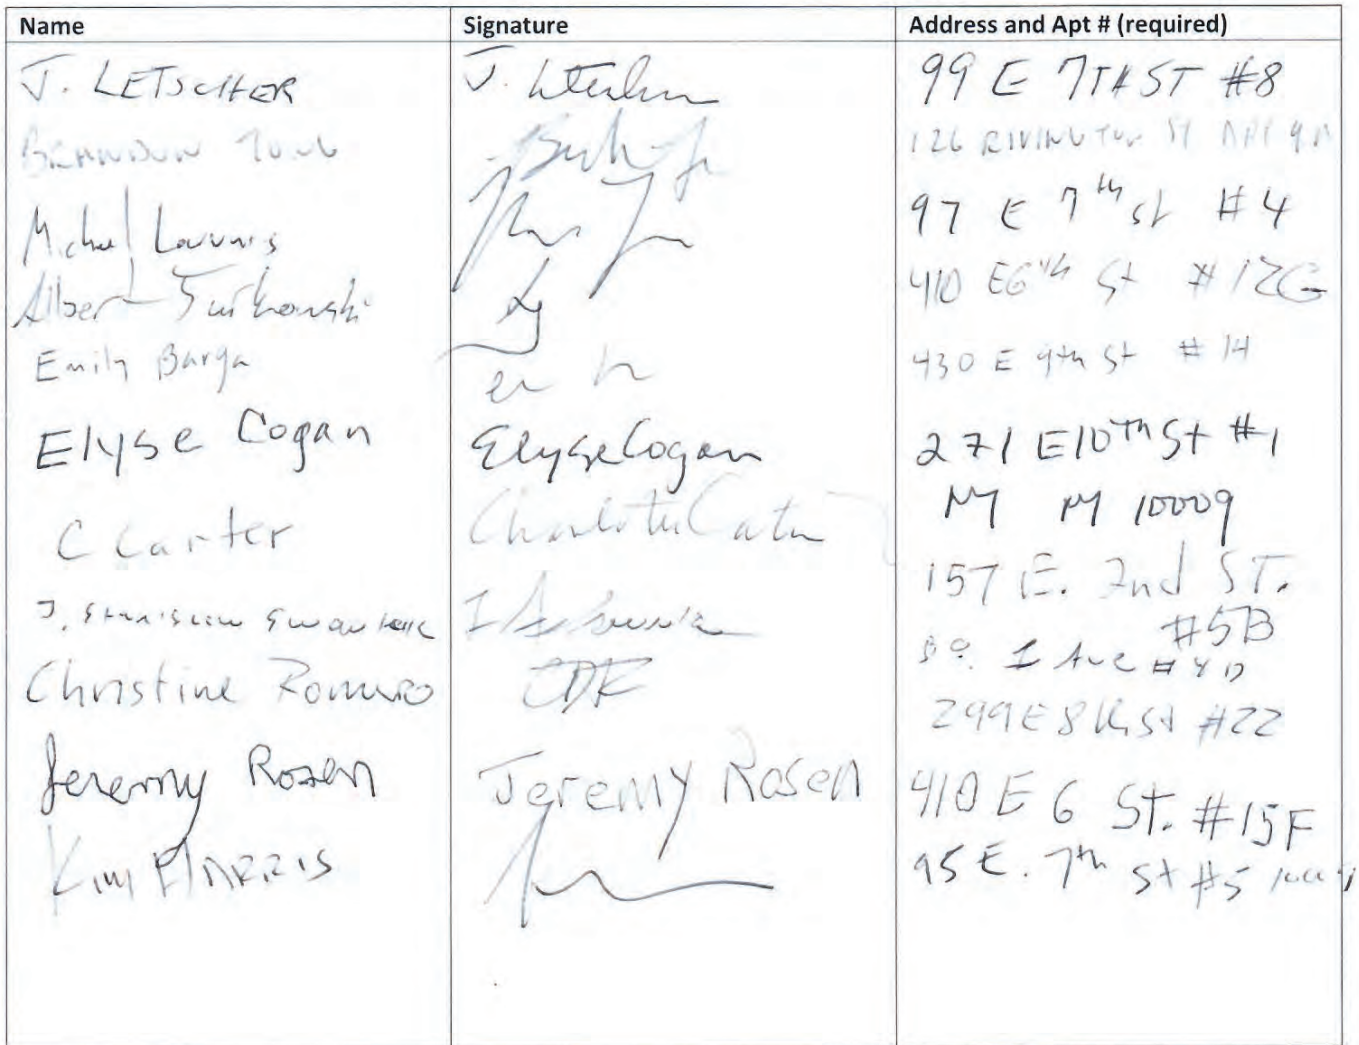 Name Signature Address and Apt # (required)
J. LETSCHER J. 99 E 7TH ST #8
BRANDON 126 RIVINGTON ST APT 9A
Michael 97 E 7th st #4
Albert 410 E6th St #12G
Emily Barga 430 E 9th St #14
Elyse Cogan Elyse Cogan 271 E10th St #1
NY NY 10009
C Carter Charlotte Carter 157 E. 2nd ST.
#5B
J. 1 Ave
Christine Romero 299 E 8th St #22
Jeremy Rosen Jeremy Rosen 410 E 6 St. #15F
Kim HARRIS 95 E. 7th St #5 10009